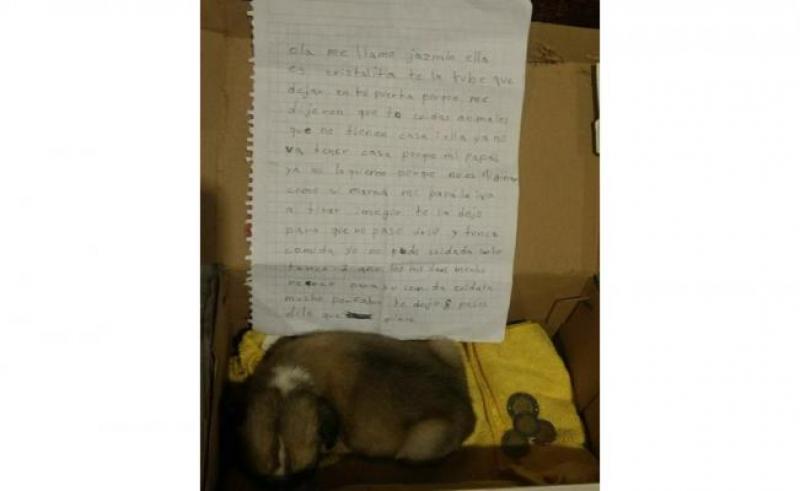 ola me llamo jazmin ella
es cristalita te la tube que
dejar en tu puerta porque me
dijeron que tu cuidas animales
que no tienen casa i ella ya no
va tener casa porque mi papás
ya no la quieren porque no es
como su mamá mi papá la iva
a tirar imejor te la dejo
para que no pase y tenga
comida yo no puedo cuidarla solo
tengo 7 año
para su comida cuidala
mucho porfabor te dejo 8 pesos
dile que